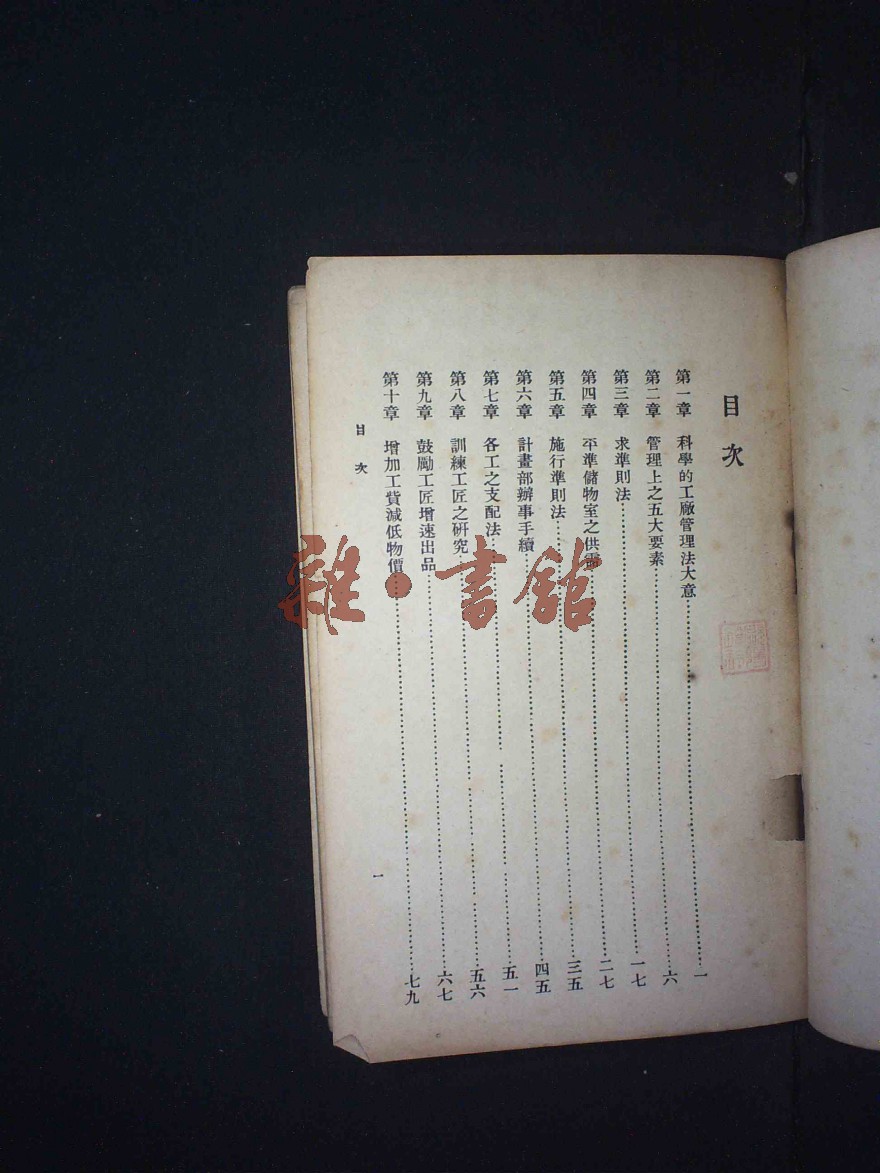 目次
第一章 科學的工廠管理法大意……一
第二章 管理上之五大要素……六
第三章 求準則法……一七
第四章 平準儲物室之供需……二七
第五章 施行準則法……三五
第六章 計畫部辦事手續……四五
第七章 各工之支配法……五一
第八章 訓練工匠之研究……五六
第九章 鼓勵工匠增速出品……六七
第十章 增加工貲減低物價……七九
目次
一
雜·書館